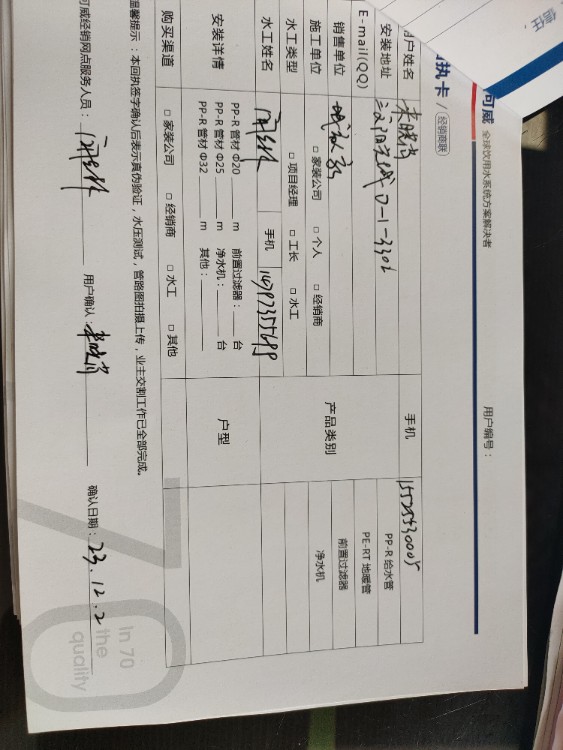 信任,
可威 全球饮用水系统方案解决者
用户编号:
执卡 / 经销商联
户姓名 手机 15525530005
安装地址 0-1-3302 PP-R 给水管
E-mail(QQ) PE-RT 地暖管
销售单位 产品类别 前置过滤器
施工单位 □ 家装公司 □ 个人 □ 经销商 净水机
水工类型 □ 项目经理 □ 工长 □ 水工
水工姓名 手机
安装详情 PP-R 管材 Φ20 m 前置过滤器: 台 户型
PP-R 管材 Φ25 m 净水机: 台
PP-R 管材 Φ32 m 其他:
购买渠道 □ 家装公司 □ 经销商 □ 水工 □ 其他
温馨提示:本回执签字确认后表示真伪验证,水压测试,管路图拍摄上传,业主交割工作已全部完成。
可威经销网点服务人员: 用户确认: 确认日期: 23.12.2
In 70
the
quality